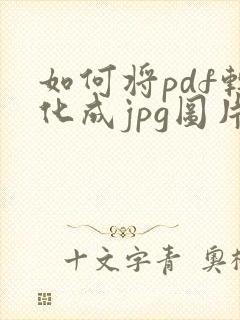 如何将pdf转
化成jpg图片
十文字青 奥